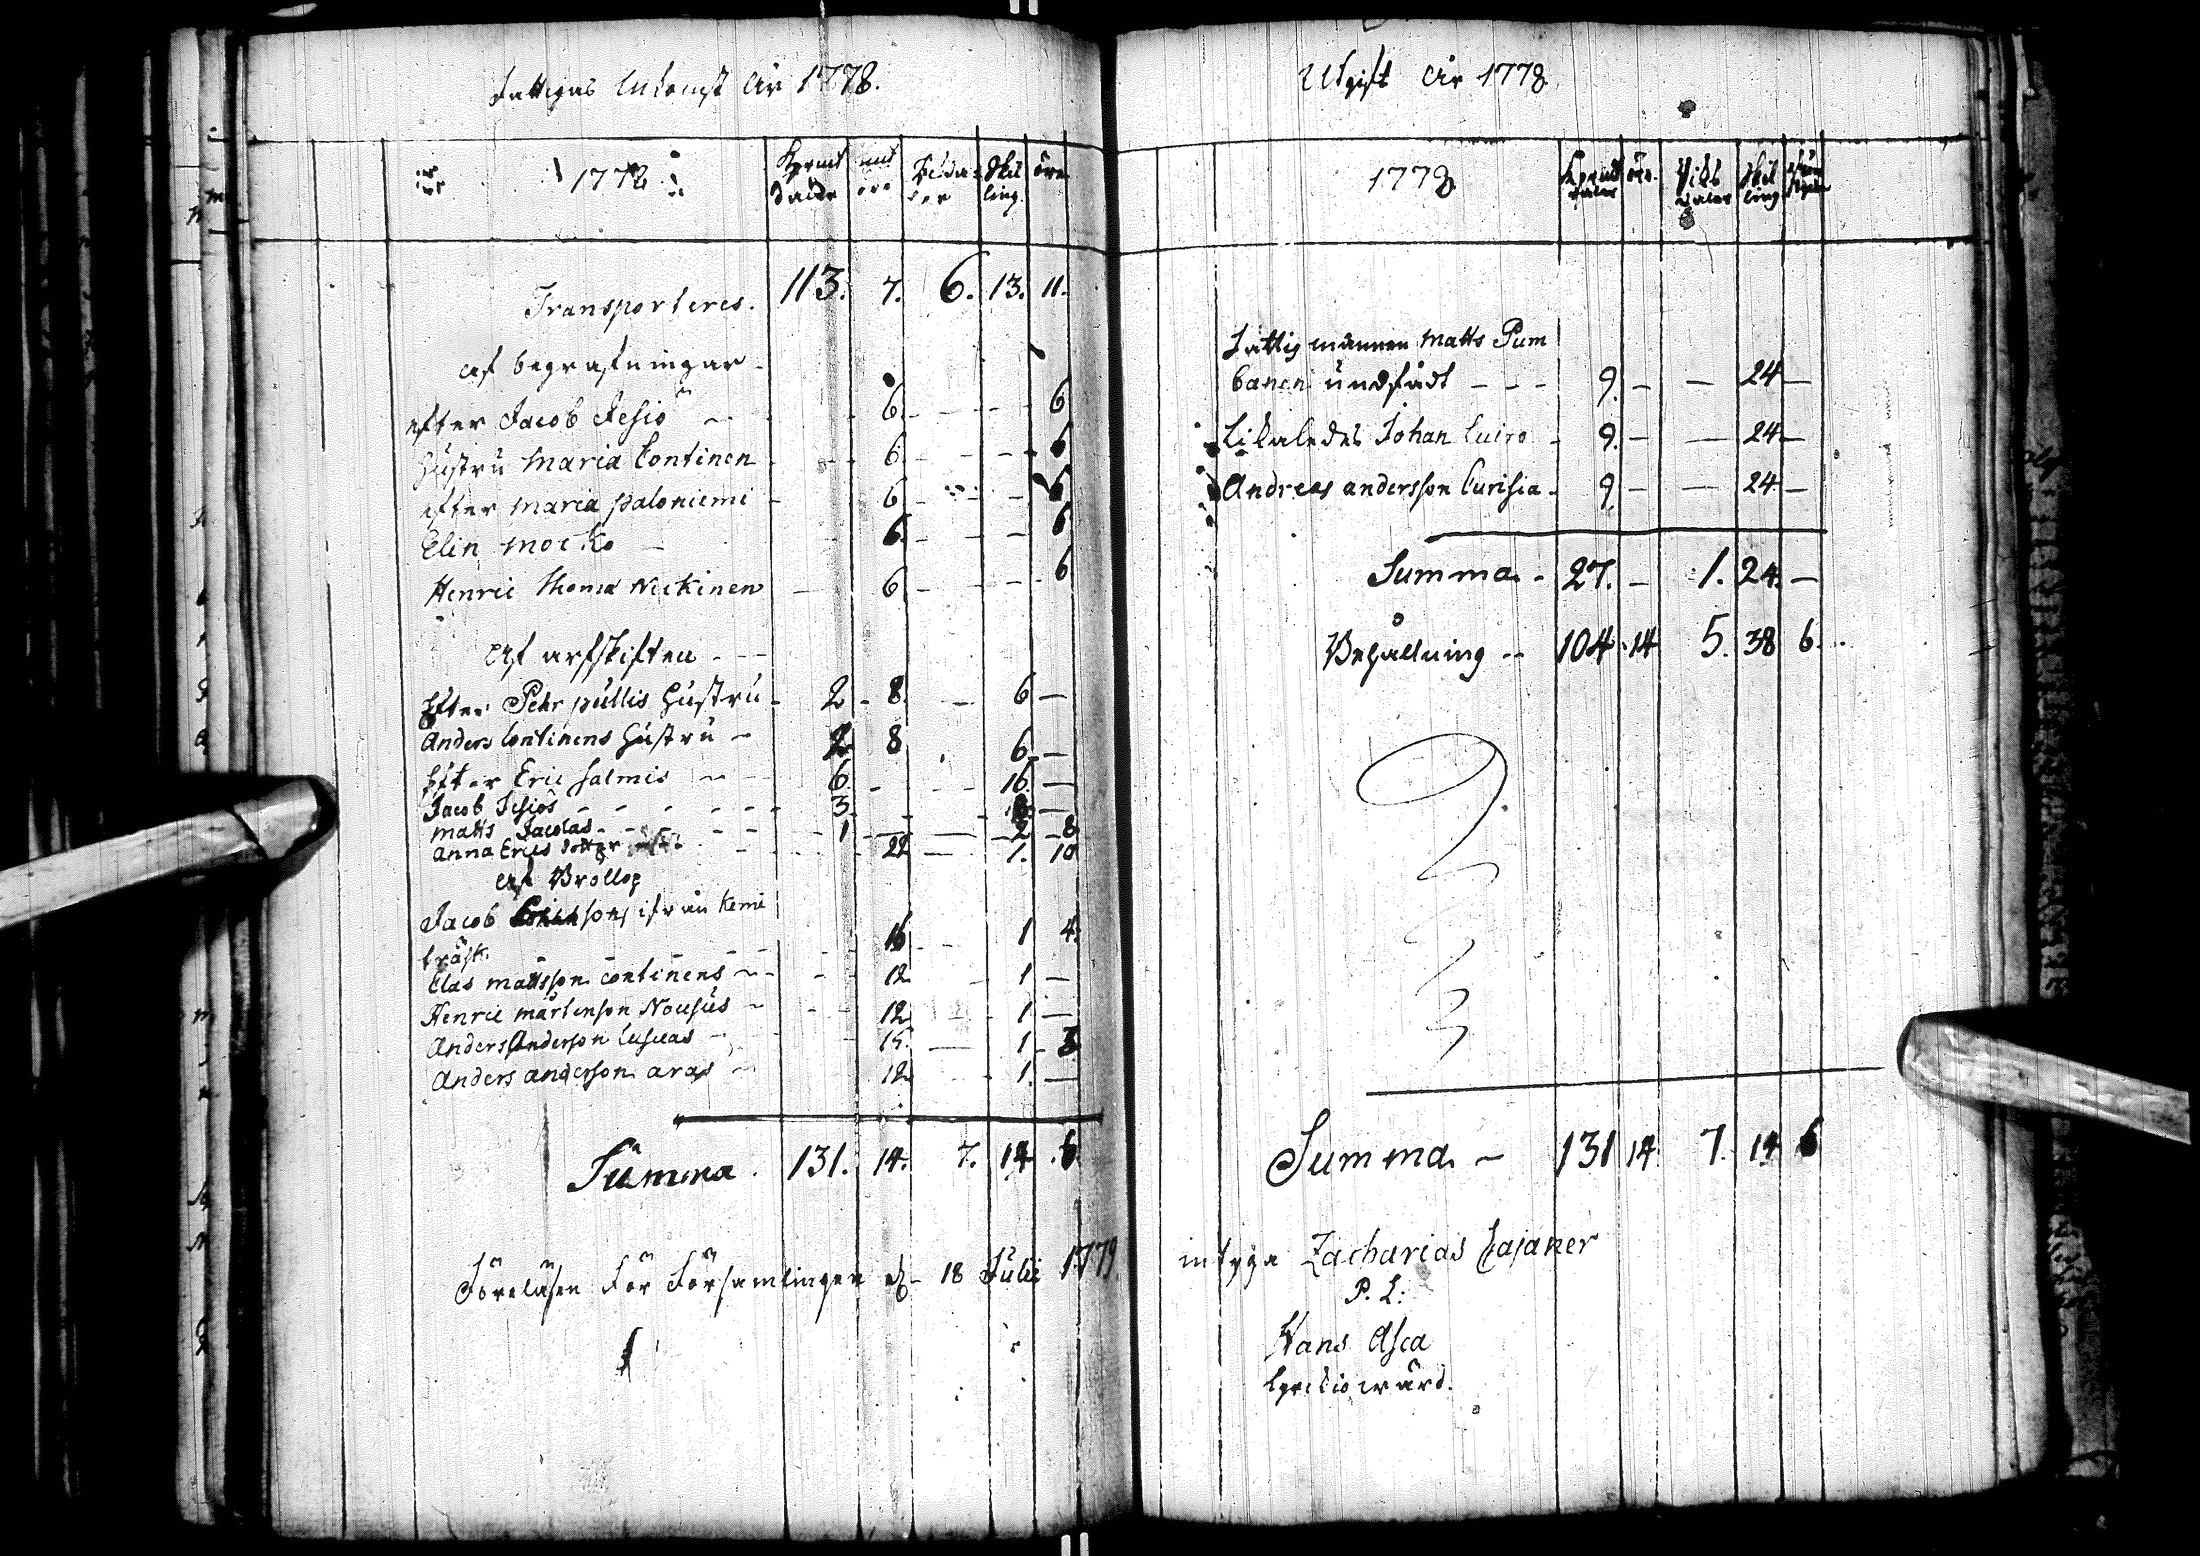 Fattigas Inkomst År 1778.
1778
Kpmt daler
mt öre
Rikda ler
Skil ling.
öre
Transporteres. 113. 7. 6. 13. 11.
Af begrafningar -
efter Jacob Jesiö - - 6. - - - 6
Hustru Maria Continen - - 6. - - - 6
efter Maria Paloniemi - 6 - - - 6
Elin Mocko - 6. - - 6
Henric Thoma Nickinen - 6 - - - 6
Af arfskiften - - -
Efter Pehr Pullis Hustru - 2 - 8. - 6 -
Anders Continens Hustru - 2 8 6. -
Efter Eric Salmis - - 6. - - - 16. -
Jacob Jesiös - - - - - - 3 - - 8 -
Matts Jacolas - - - - - 1 - - 2 - 8
Anna Erics dotter - - - 22 - 1. 10
Af Bröllop
Jacob Ericsons ifrån Kemi
träsk. - - - - - 16 - - 1 4.
Clas Mattsson Continens - - - - 12 - 1 -
Henric Mårtenson Nousus - - - 12 - - 1 -
Anders Anderson Cusuas - - 15. - 1 - 3
Anders Anderson Aras - 12 - - 1. -
Summa. 131. 14. 7. 14. 6.
Föreläsen för Församlingen d. 18 Julii 1779
Utgift År 1778
1778
Kpmt daler
öre.
Riks daler
Skil ling
Fattig mannen Matts Pum
banen undfådt - - - 9. - - 24 -
Likaledes Johan Cuiro - 9. - - 24 -
Andreas Andersson Curisia - 9. - - 24 -
Summa - 27. - 1. 24. -
Behållning - - 104 14 5. 38 6.
Summa - 131 14 7. 14 6
intyga Zacharias Cajaner
P. L:
Hans Asca
kyrckiowärd.